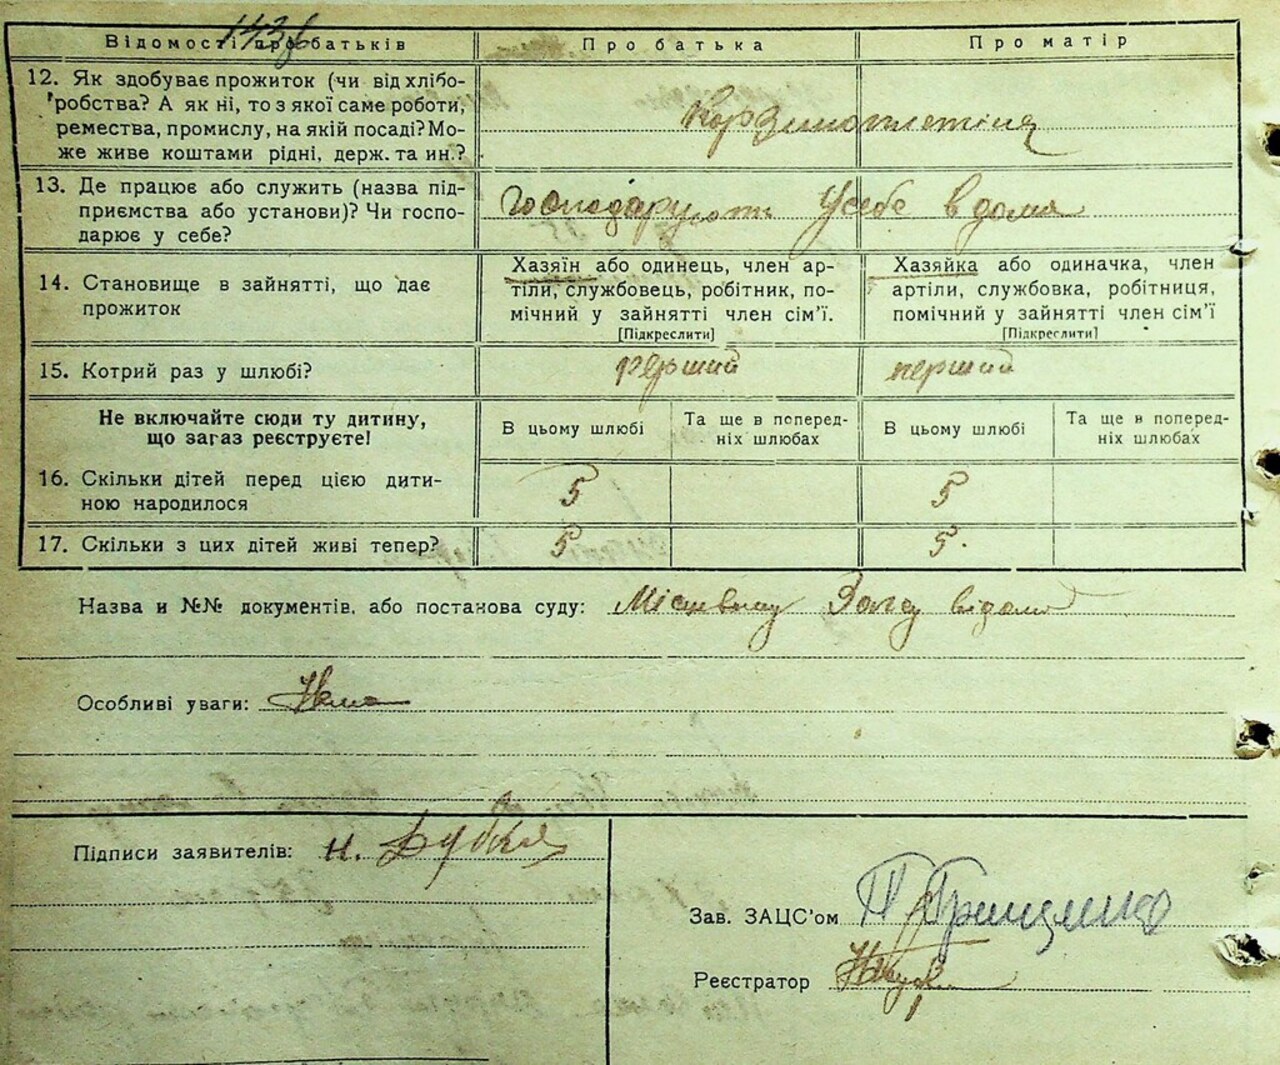 Відомості про батьків Про батька Про матір
12. Як здобуває прожиток (чи від хлібо-
робства? А як ні, то з якої саме роботи,
ремества, промислу, на якій посаді? Мо-
же живе коштами рідні, держ. та ин.?
Корзиноплетіня
13. Де працює або служить (назва під-
приємства або установи)? Чи госпо-
дарює у себе?
Господарують у себе в дома
14. Становище в зайнятті, що дає
прожиток
Хазяїн або одинець, член ар-
тіли, службовець, робітник, по-
мічний у зайнятті член сім'ї.
[Підкреслити]
Хазяйка або одиначка, член
артіли, службовка, робітниця,
помічний у зайнятті член сім'ї
[Підкреслити]
15. Котрий раз у шлюбі? перший перший
Не включайте сюди ту дитину,
що загаз реєструєте!
В цьому шлюбі
Та ще в поперед-
ніх шлюбах
В цьому шлюбі
Та ще в поперед-
ніх шлюбах
16. Скільки дітей перед цією дити-
ною народилося
5 5
17. Скільки з цих дітей живі тепер? 5 5.
Назва и №№ документів, або постанова суду: Місцевому Загсу відомі
Особливі уваги: Нема
Підписи заявителів: Н. Дубка
Зав. ЗАЦС'ом П Грищенко
Реєстратор